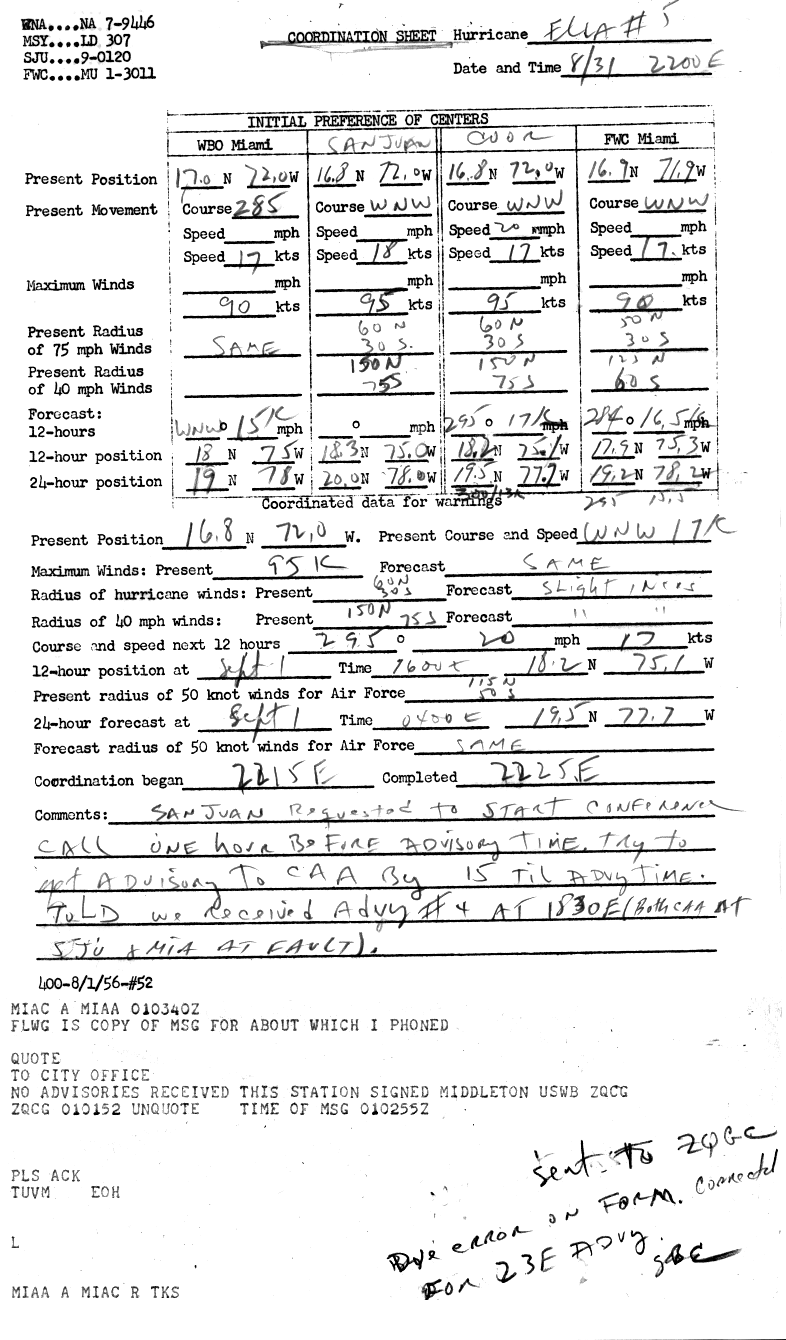 WNA....NA 7-9446
MSY....LD 307
SJU....9-0120
FWC....MU 1-3011
COORDINATION SHEET Hurricane ELLA # 5
Date and Time 8/31 2200 E
INITIAL PREFERENCE OF CENTERS
WBO Miami SAN JUAN COOR FWC Miami
Present Position 17.0 N 72.0 W 16.8 N 72.0 W 16.8 N 72.0 W 16.9 N 71.9 W
Present Movement Course 285 Course WNW Course WNW Course WNW
Speed mph Speed mph Speed 20 mph Speed mph
Speed 17 kts Speed 18 kts Speed 17 kts Speed 17. kts
Maximum Winds mph mph mph mph
90 kts 95 kts 95 kts 90 kts
Present Radius 60 N 60 N 50 N
of 75 mph Winds SAME 30 S. 30 S 30 S
Present Radius 150 N 150 N 125 N
of 40 mph Winds 75S 75 S 60 S
Forecast:
12-hours WNW o 15K mph o mph 295 o 17K mph 284 o 16.5K mph
12-hour position 18 N 75 W 18.3 N 75.0 W 18.2 N 75.1 W 17.9 N 75.3 W
24-hour position 19 N 78 W 20.0 N 78.0 W 19.5 N 77.7 W 19.2 N 78.2 W
300/13K 295 15.5
Coordinated data for warnings
Present Position 16.8 N 72.0 W. Present Course and Speed WNW 17K
Maximum Winds: Present 95 K Forecast SAME
Radius of hurricane winds: Present 60N 30S Forecast SLIGHT INCRS
Radius of 40 mph winds: Present 150N 75S Forecast " "
Course and speed next 12 hours 295 o 20 mph 17 kts
12-hour position at Sept 1 Time 1600 E 18.2 N 75.1 W
Present radius of 50 knot winds for Air Force 115 N 50 S
24-hour forecast at Sept 1 Time 0400 E 19.5 N 77.7 W
Forecast radius of 50 knot winds for Air Force SAME
Coordination began 2215 E Completed 2225 E
Comments: SAN JUAN Requested to START CONFERENCE
CALL ONE hour BEFORE ADVISORY TIME. Try to
get ADVISORY TO CAA By 15 Til ADVY TIME.
TOLD we Received Advy # 4 AT 1830E (Both CAA AT
SJU & MIA AT FAULT).
400-8/1/56-#52
MIAC A MIAA 010340Z
FLWG IS COPY OF MSG FOR ABOUT WHICH I PHONED
QUOTE
TO CITY OFFICE
NO ADVISORIES RECEIVED THIS STATION SIGNED MIDDLETON USWB ZQCG
ZQCG 010152 UNQUOTE TIME OF MSG 010255Z
sent to ZQGC
PLS ACK
TUVM EOH
Due error on FORM. Corrected
For 23E ADVY.
L
MIAA A MIAC R TKS